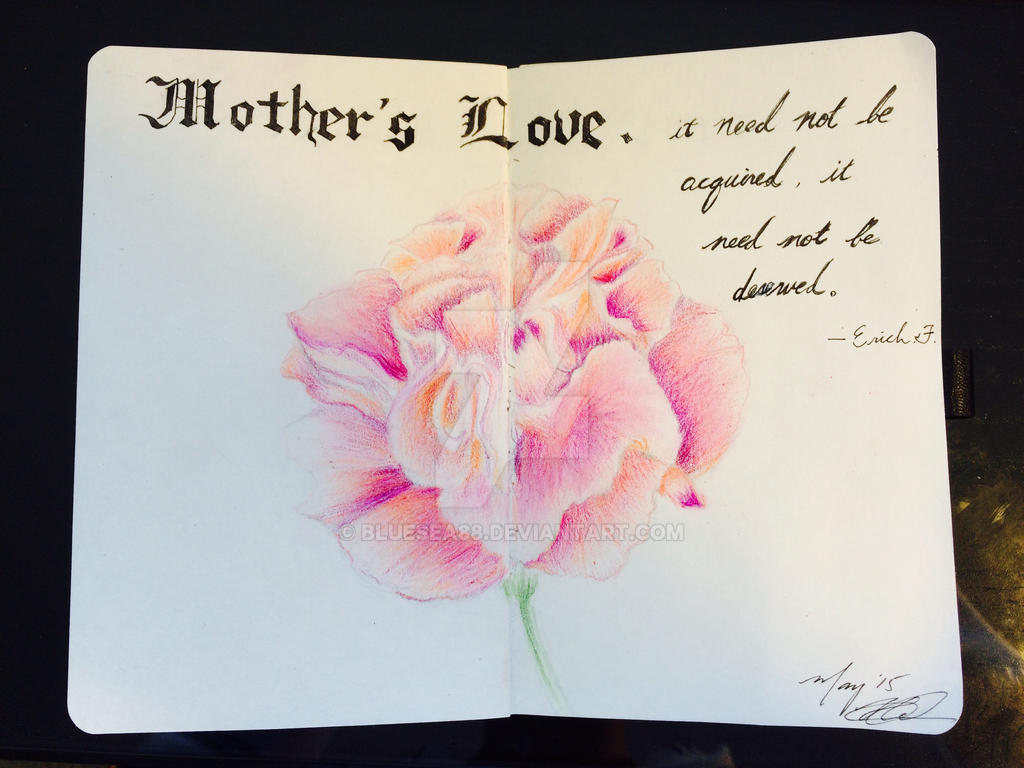 Mother's Love. it need not be
acquired, it
need not be
deserved.
— Erich F.
© BLUESEA88.DEVIANTART.COM
May '15